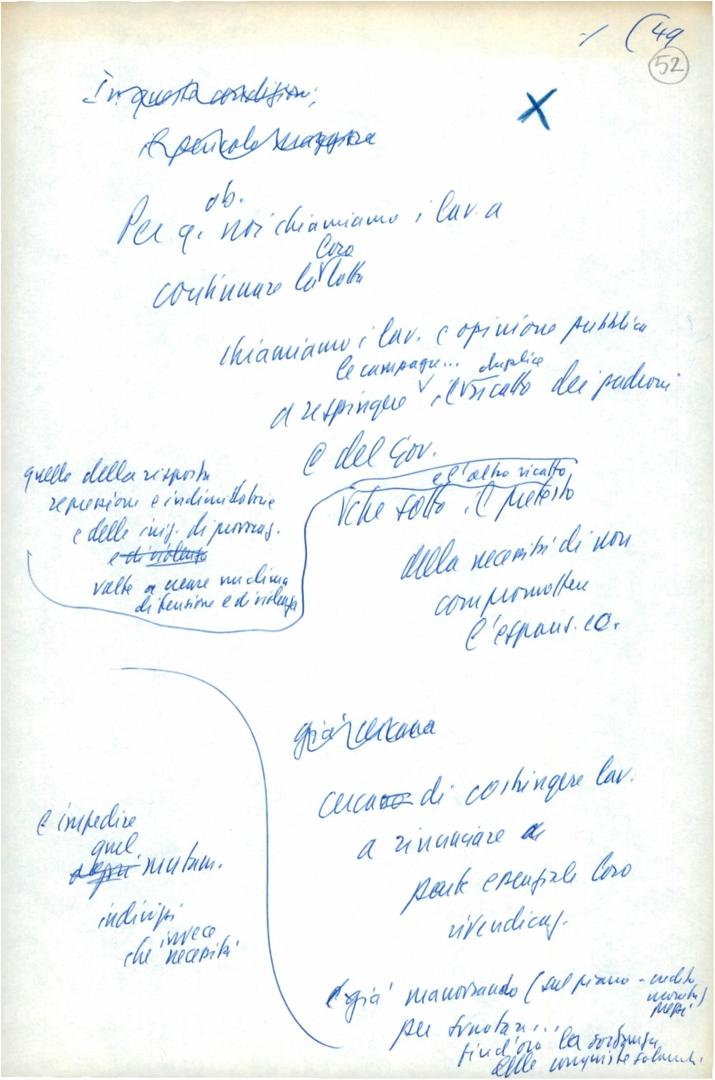 ·/. (49
52
In questa condizioni,
il pericolo maggiore
ob.
Per q. noi chiamiamo i lav. a
loro
continuare la lotta
chiamiamo i lav. e opinione pubblica
le campagn... duplice
a respingere il ricatto dei padroni
e del Gov.
quello della risposta
repressione e indimidatoria
e delle iniz. di provoc.
e di violenza
volte a creare un clima
di tensione e di violenza
e l'altro ricatto
che sotto il pretesto
della necessità di non
compromettere
l'espans. ec.
già
cercano di costringere lav.
a rinunciare a
parte essenziale loro
rivendicaz.
e impedire
quel
ogni mutam.
indirizzi
invece
che necessità
e già manovrando (sul piano - credito
monetar)
prezzi
per svuotare...
fin d'ora la sostanza
delle conquiste salariali.